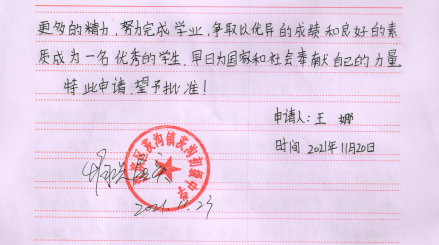 更多的精力,努力完成学业,争取以优异的成绩和良好的素
质成为一名优秀的学生,早日为国家和社会奉献自己的力量。
特此申请,望予批准!
申请人:王娜
时间 2021年11月20日
镇茨沟初级中学
2021.11.23